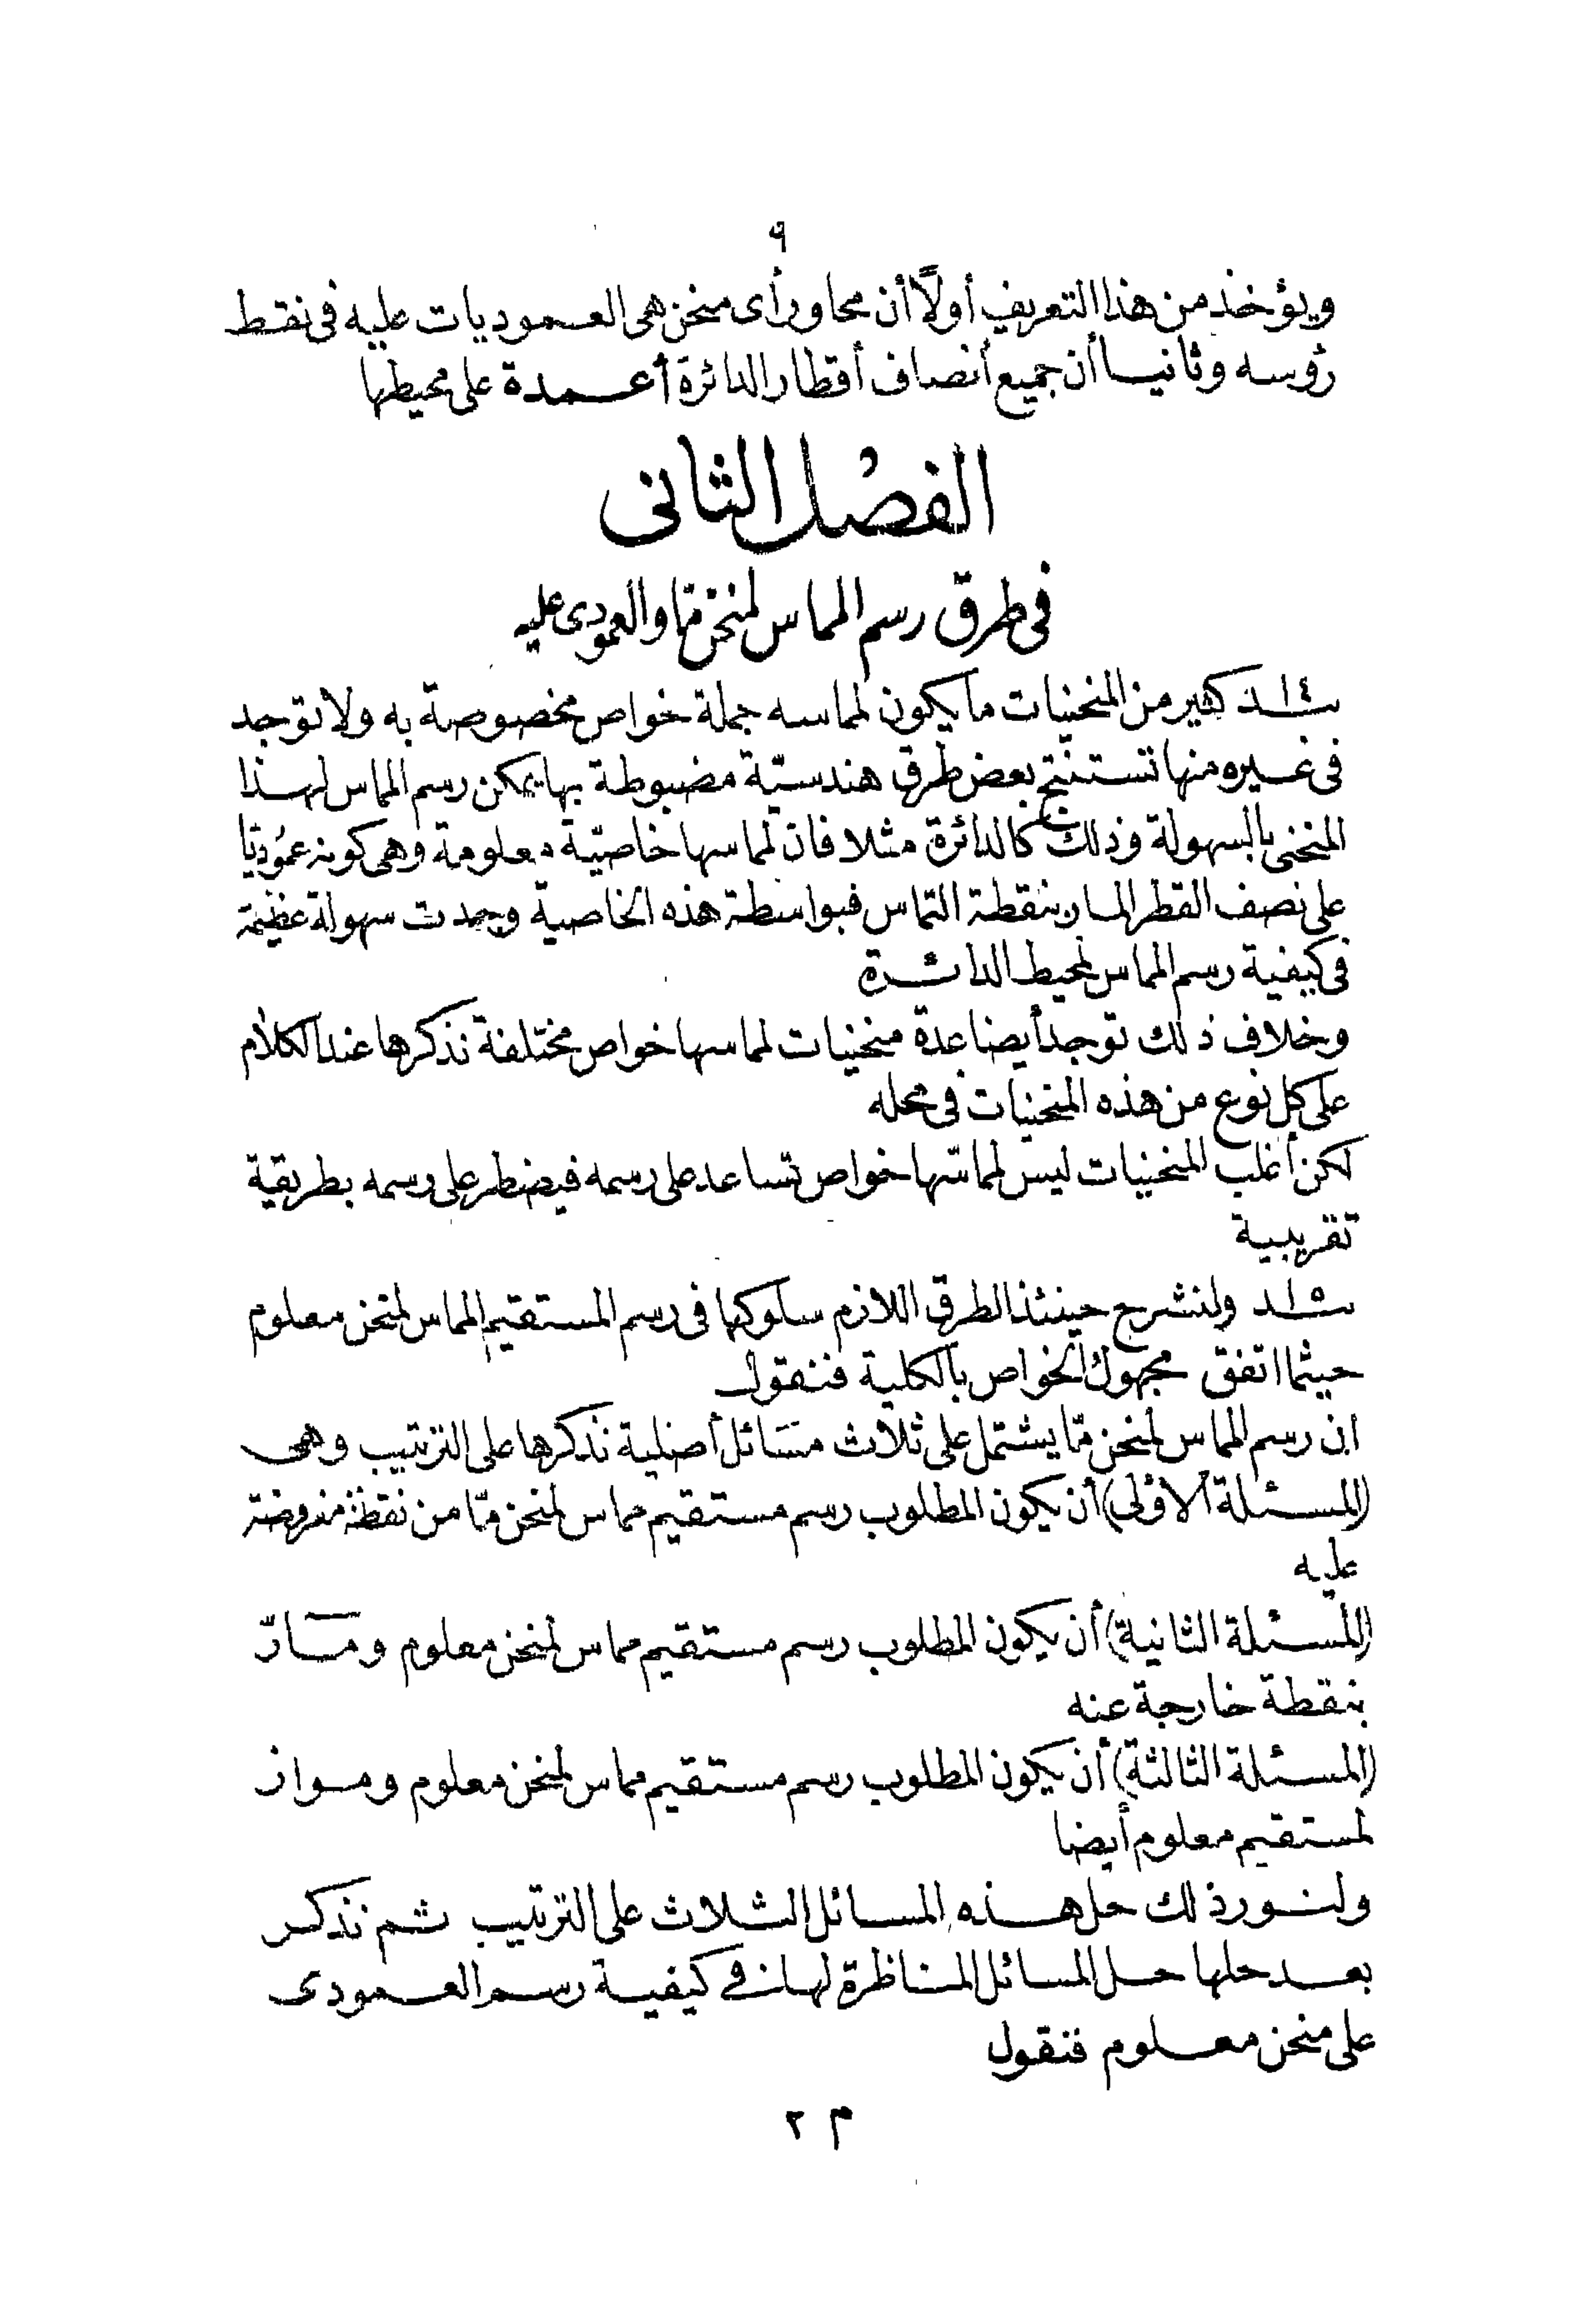 ٩
ويؤخذ من هذا التعريف أولًا أن محاور أى منحن هى العموديات عليه فى نقط
رؤسه وثانيا أن جميع أنصاف أقطار الدائرة أعمدة على محيطها
الفصل الثانى
فى طرق رسم المماس لمنحن مّا والعمودى عليه
١٤ـد كثير من المنحنيات ما يكون لمماسه جملة خواص مخصوصة به ولا توجد
فى غيره منها تستنتج بعض طرق هندسيّة مضبوطة بها يمكن رسم المماس لهذا
المنحنى بالسهولة وذلك كالدائرة مثلا فان لمماسها خاصيّة معلومة وهى كونه عموديّا
على نصف القطر المار بنقطة التماس فبواسطة هذه الخاصية وجدت سهولة عظيمة
فى كيفية رسم المماس لمحيط الدائرة
وخلاف ذلك توجد أيضا عدة منحنيات لمماسها خواص مختلفة نذكرها عند الكلام
على كل نوع من هذه المنحنيات فى محله
لكن أغلب المنحنيات ليس لمماسّها خواص تساعد على رسمه فيضطر على رسمه بطريقية
تقريبية
١٥ـد ولنشرح حينئذ الطرق اللازم سلوكها فى رسم المستقيم المماس لمنحن معلوم
حيثما اتفق مجهول الخواص بالكلية فنقول
ان رسم المماس لمنحن مّا يشتمل على ثلاث مسائل أصلية نذكرها على الترتيب وهى
(المسئلة الاولى) أن يكون المطلوب رسم مستقيم مماس لمنحن مّا من نقطة مفروضة
عليه
(المسئلة الثانية) أن يكون المطلوب رسم مستقيم مماس لمنحن معلوم ومارّ
بنقطة خارجة عنه
(المسئلة الثالثة) أن يكون المطلوب رسم مستقيم مماس لمنحن معلوم ومواز
لمستقيم معلوم أيضا
ولنورد ذلك حل هذه المسائل الثلاث على الترتيب ثم نذكر
بعد حلها حل المسائل المناظرة لها فى كيفية رسم العمودى
على منحن معلوم فنقول
م ٢